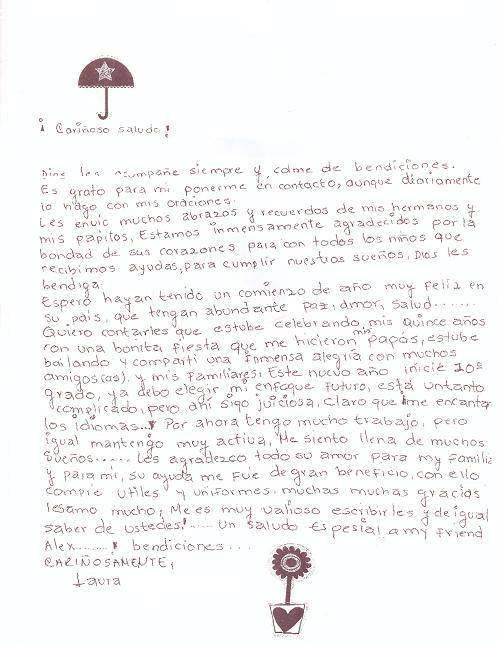 ¡ Cariñoso saludo!
Dios les acompañe siempre y colme de bendiciones.
Es grato para mi ponerme en contacto, aunque diariamente
lo hago con mis oraciones.
Les envio muchos abrazos y recuerdos de mis hermanos y
mis papitos, Estamos inmensamente agradecidos por la
bondad de sus corazones para con todos los niños que
recibimos ayudas, para cumplir nuestros sueños, Dios les
bendiga.
Espero hayan tenido un comienzo de año muy Feliz en
su pais, que tengan abundante paz, amor, salud.......
Quiero contarles que estube celebrando mis quince años
con una bonita fiesta que me hicieron mis papás, estube
bailando y comparti una inmensa alegria con muchos
amigos(as). y mis Familiares; Este nuevo año inicie 10º
grado, ya debo elegir mi enfoque Futuro, está untanto
complicado, pero ahi sigo juiciosa, claro que me encantan
los idiomas...! Por ahora tengo mucho trabajo, pero
igual mantengo muy activa, Me siento llena de muchos
Sueños..... Les agradezco todo su amor para my familia
y para mi, su ayuda me Fue de gran beneficio, con ello
compre utiles y uniformes. muchas muchas gracias
lesamo mucho; Me es muy valioso escribirles y de igual
saber de ustedes!..... Un saludo Espesial a my Friend
Alex........! bendiciones...
CARIÑOSAMENTE,
Laura